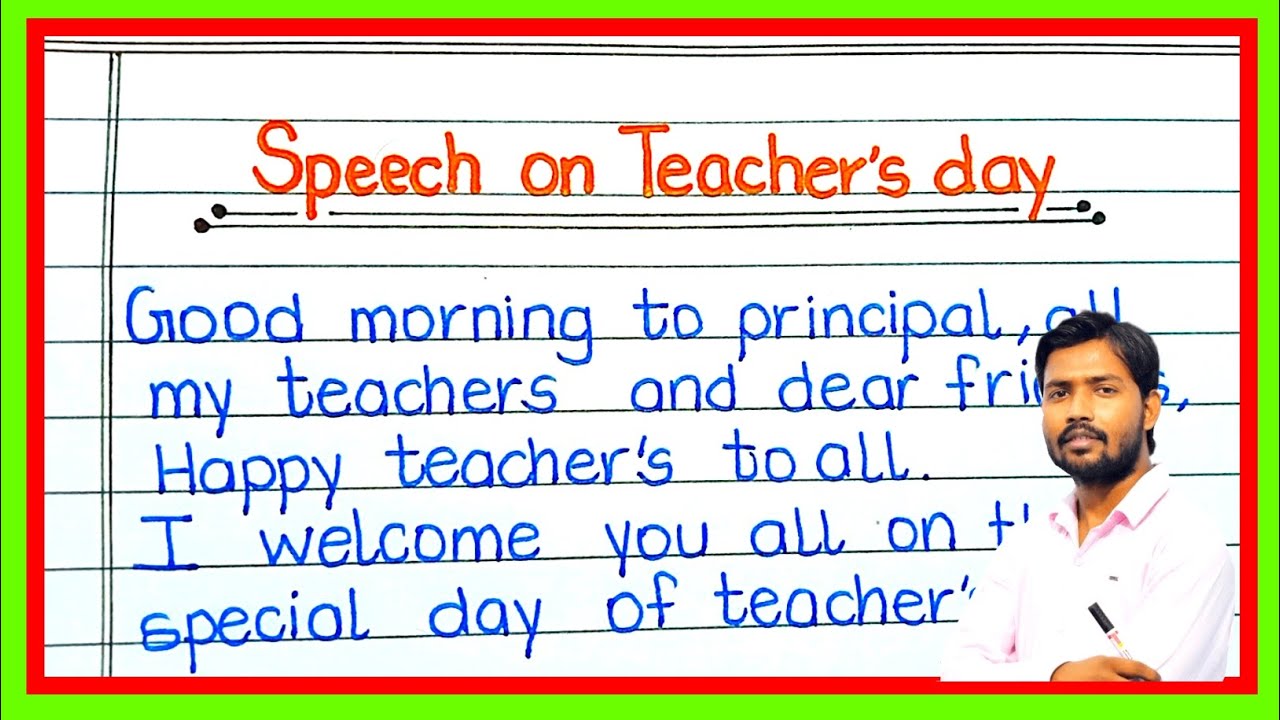 Speech on Teacher's day
Good morning to principal, all
my teachers and dear
Happy teacher's to all.
I welcome you all on
special day of teacher's